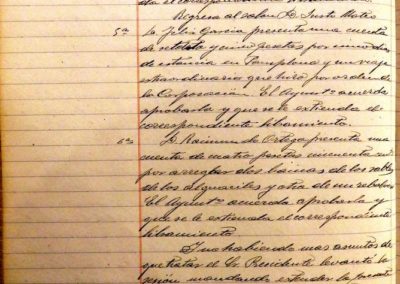 da el correspondiente
Regresa al salon D. Justo Mateo
5ª D. Felix Garcia presenta una cuenta
de setenta y cinco pesetas por un dia
de estancia en Pamplona y un viaje
extraordinario que hizo por orden de
la Corporacion. El Ayuntº acuerda
aprobarla y que se le extienda el
correspondiente libramiento.
6ª D. Raimundo Ortega presenta una
cuenta de cuatro pesetas cincuenta
por arreglar dos de los sables
de los alguaciles y otra de un
El Ayuntº acuerda aprobarla y
que se le extienda el correspondiente
libramiento.
Y no habiendo mas asuntos de
que tratar el Sr. Presidente levantó la
sesion mandando extender la presente